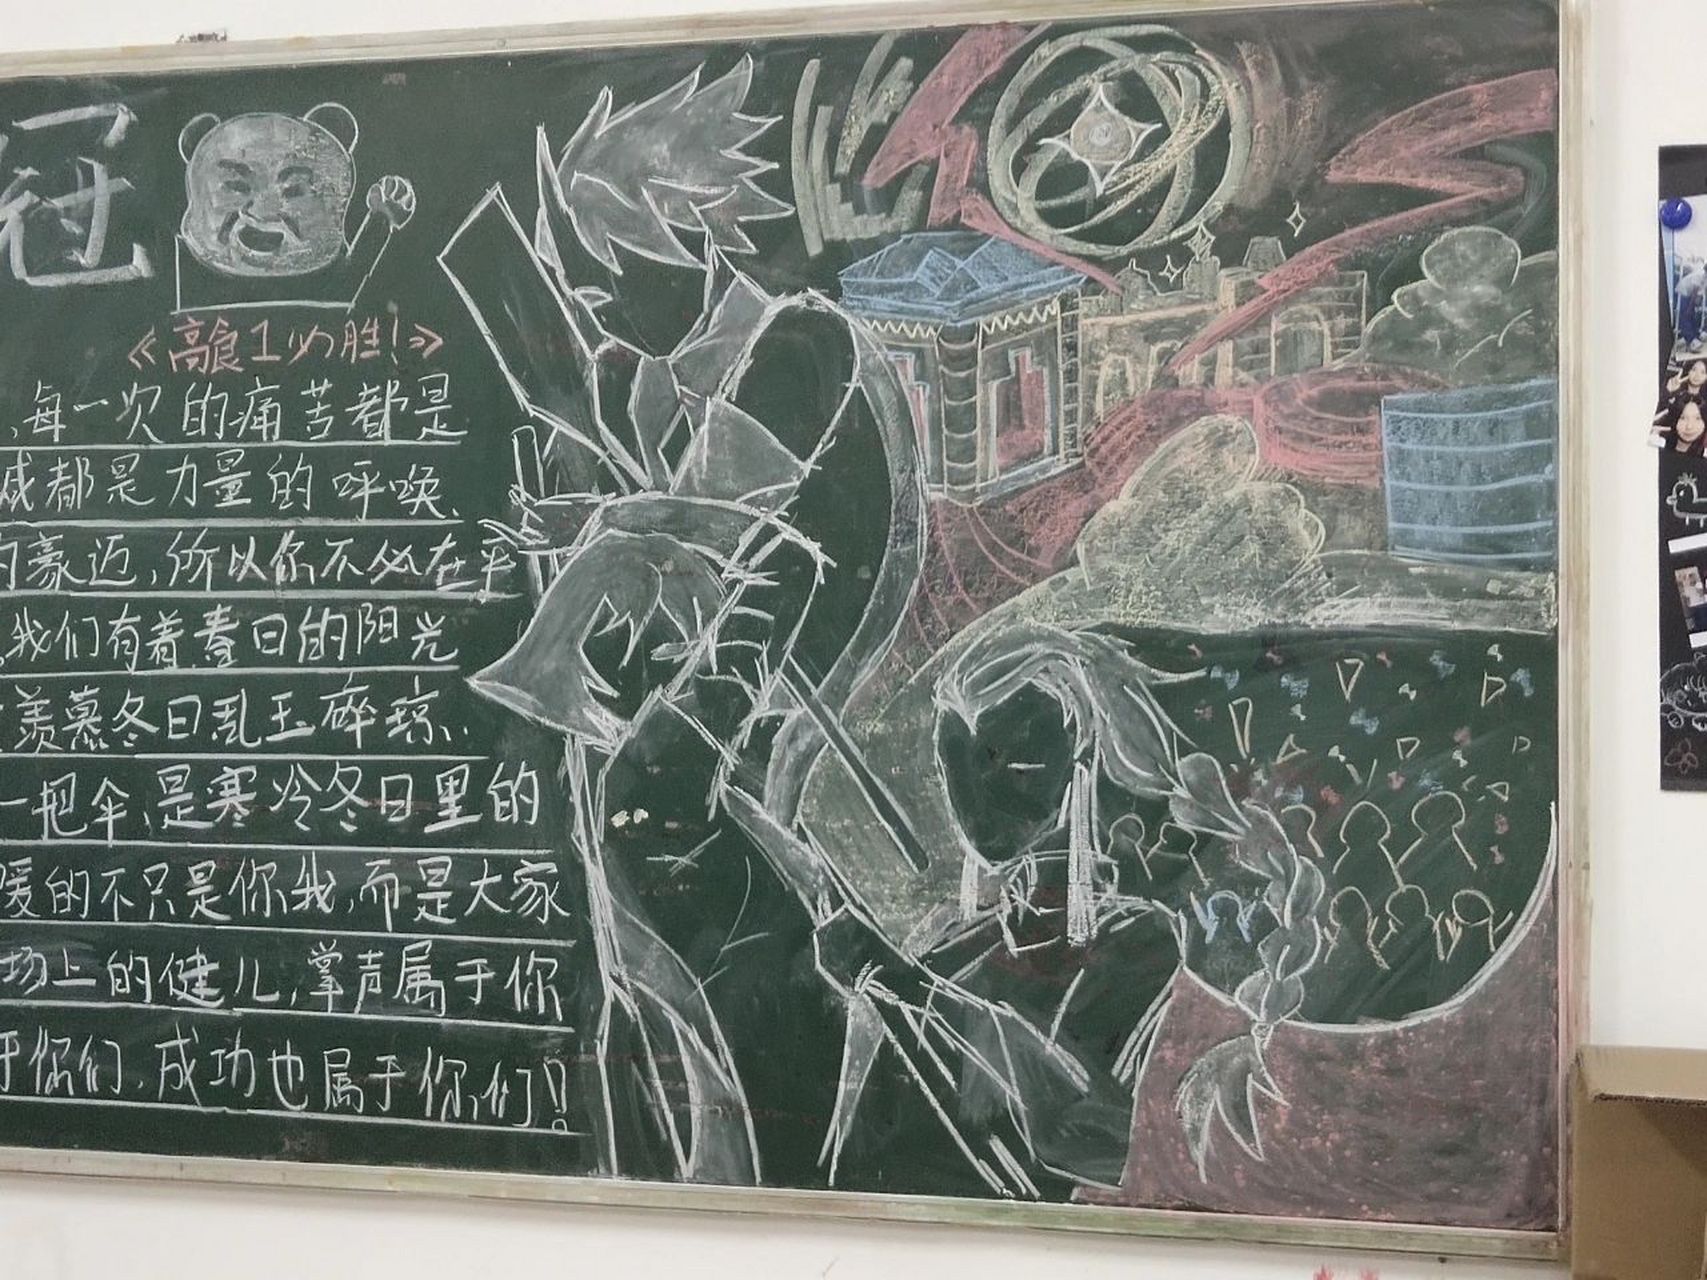 冠
《高食1必胜！》
，每一次的痛苦都是
都是力量的呼唤、
的豪迈，所以你不必在乎
我们有着春日的阳光
羡慕冬日乱玉碎琼、
一把伞，是寒冷冬日里的
暖的不只是你我，而是大家
场上的健儿，掌声属于你
于你们，成功也属于你们！！